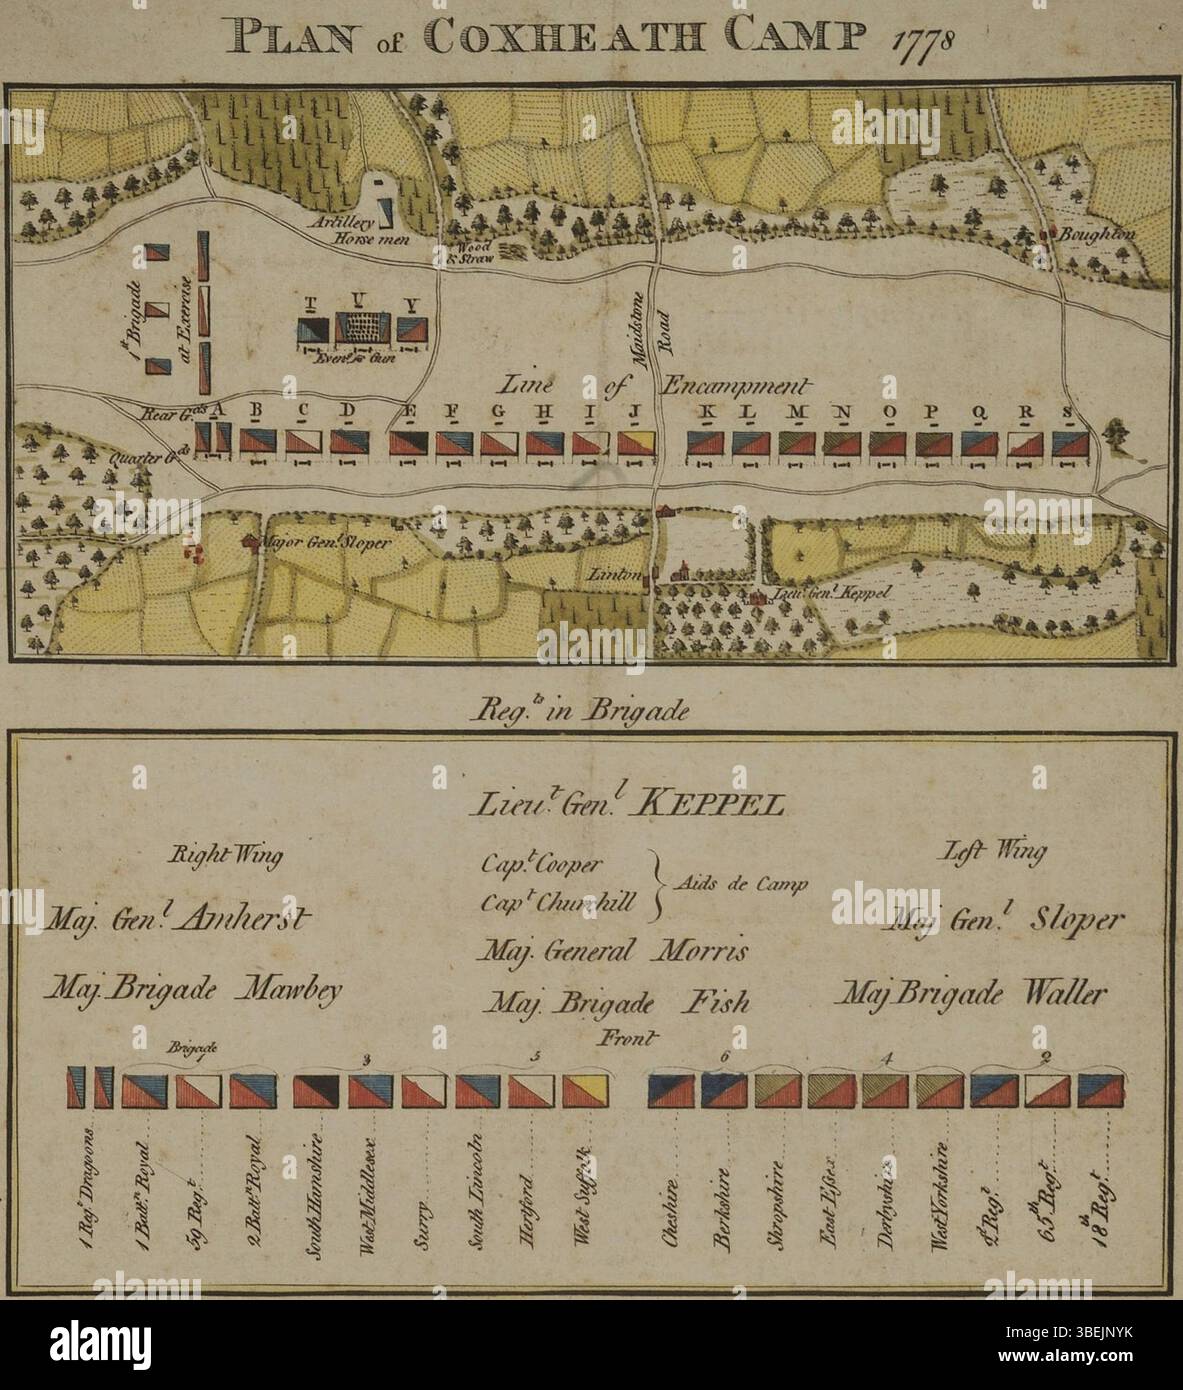 PLAN of COXHEATH CAMP 1778
Artillery
Horse men
Wood
& Straw
Boughton
1st Brigade
at Exercise
T U Y
Maidstone
Road
Line of Encampment
Rear Gds
A B C D E F G H I J K L M N O P Q R S
Quarter Gds
Major Genl. Sloper
Linton
Lieut. Genl. Keppel
Reg.ts in Brigade
Lieut. Genl. KEPPEL
Right Wing
Capt. Cooper
Capt. Churchill
Aids de Camp
Left Wing
Maj. Genl. Amherst
Maj. General Morris
Maj Genl. Sloper
Maj. Brigade Mawbey
Maj. Brigade Fish
Maj Brigade Waller
Front
Brigade
1 3 5 6 4 2
1 Regt. Dragoons
1 Battn. Royal
59 Regt.
2 Battn. Royal
South Hamshire
West Middlesex
Surry
South Lincoln
Hertford
West Suffolk
Cheshire
Berkshire
Shropshire
East Essex
Derbyshire
West Yorkshire
2d Regt.
65th Regt.
18th Regt.
alamy
Image ID: 3BEJNYK
www.alamy.com